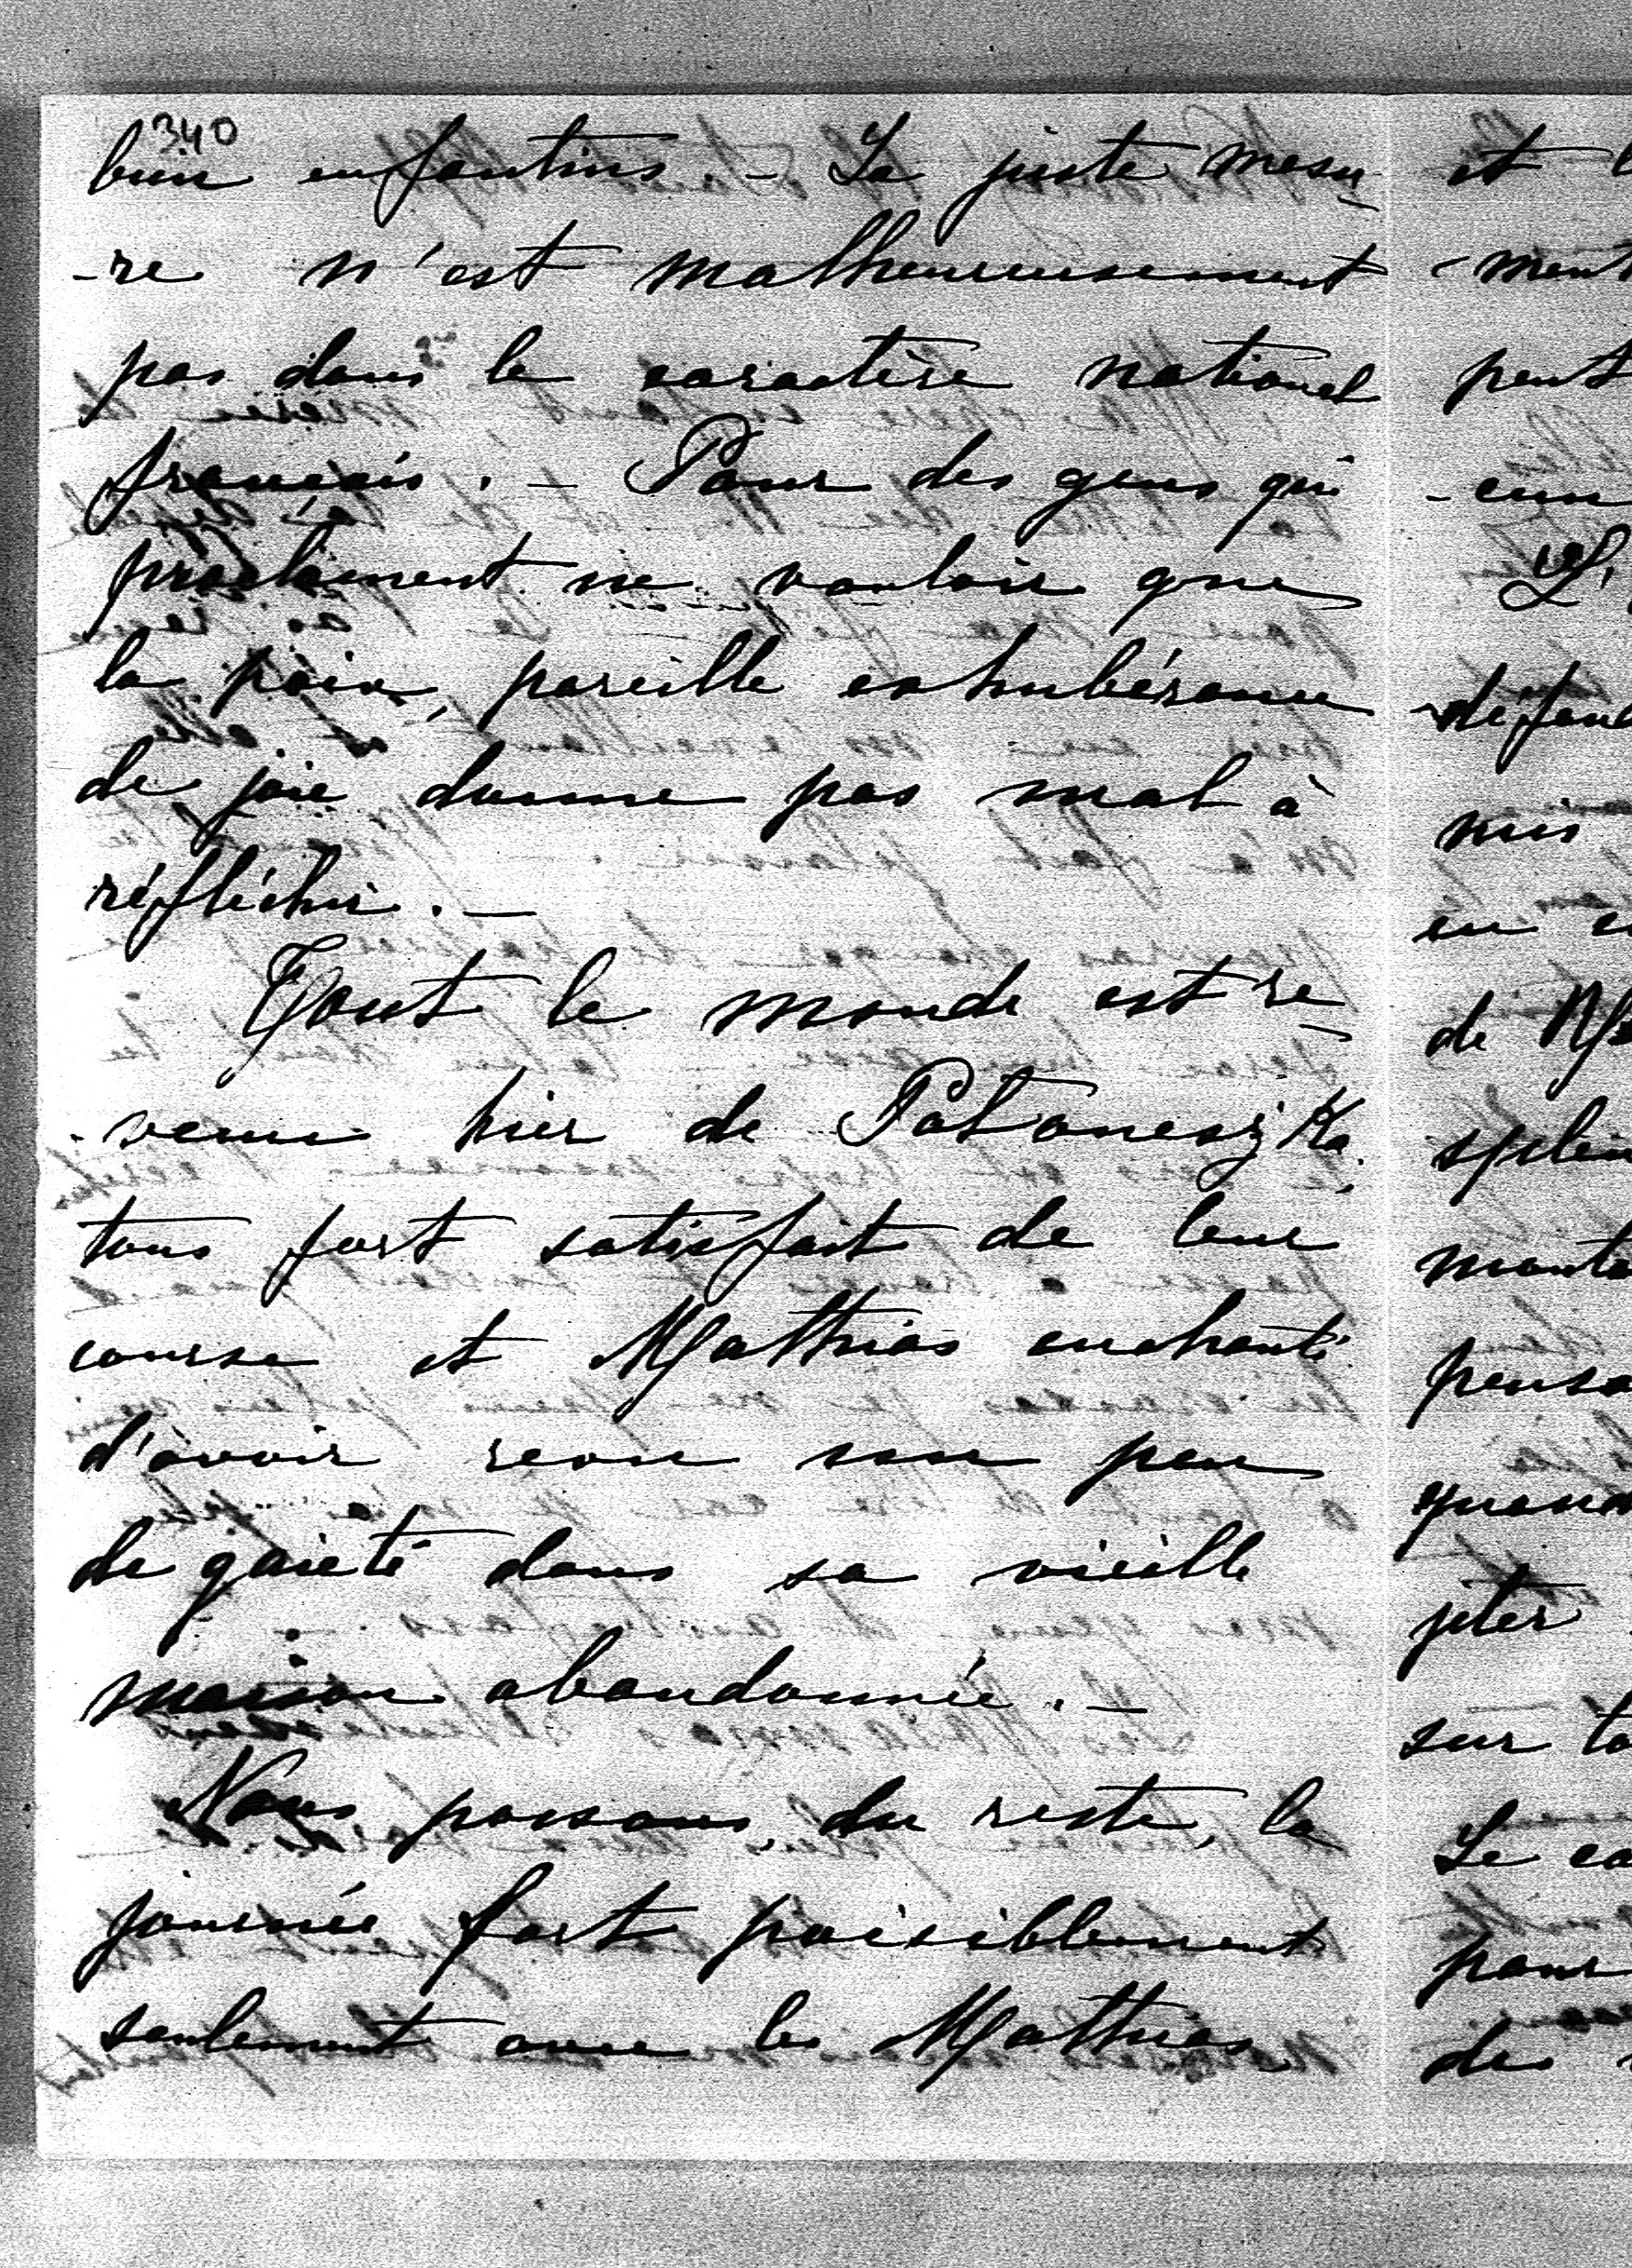 340
bien enfantins. - La juste mesu-
-re n'est malheureusement
pas dans le caractère national
français. - Pour des gens qui
proclament ne vouloir que
la paix, pareille exhubérance
de joie donne pas mal à
réfléchir. -
Tout le monde est re-
-venu hier de Patoneszka,
tous fort satisfait de leur
course et Mathias enchanté
d'avoir revu un peu
de gaieté dans sa vieille
maison abandonnée. -
Nous passons, du reste, la
journée fort paisiblement
seulement avec les Mathias
et
-ment
peut
-cun
L'
défen
nis
en
de
splen
monta
pensa
quan
pter
sur to
Le ca
pour
des